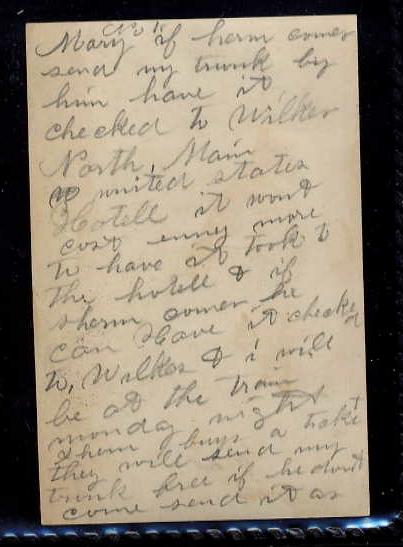 Mary if herm comes
send my trunk by
him have it
checked to Wilkes
North, Main
united states
Hotell it wont
cost enney more
to have it took to
the hotell & if
sherm comes he
can Have it checked
to, Wilkes & i will
be at the train
monday night
sherm buys a ticket
they will send my
trunk free if he dont
come send it as